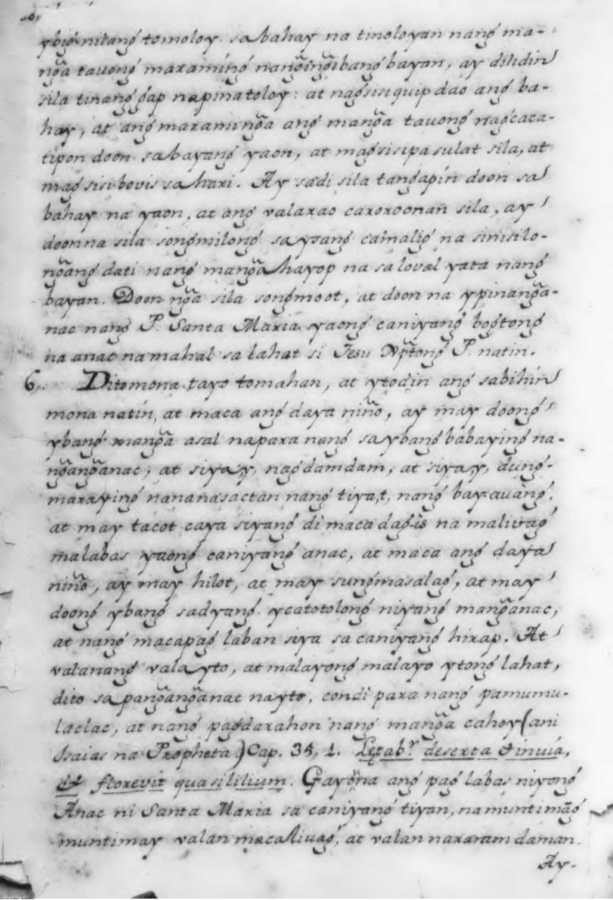 ybig nilang tomoloy. sa bahay na tinoloyan nang ma-
ng̃a tauong maramíng nang̃ing̃ibang bayan, ay dilidin
sila tinangg̃ap napinatoloy: at nag̃sisiquip dao ang ba-
hay, at ang maraming̃a ang mang̃a tauong nag̃cata-
tipon doon sabayang yaon, at mag̃sisipa sulat sila, at
mag̃sisibovis sa hari. Ay sadi sila tang̃apín doon sa
bahay na yaon, at ang valarao caroroonan sila, ay
doonna sila song̃milong sa ysang camalig na sinisilo-
ng̃ang dati nang mang̃a hayop na sa loval yata nang
bayan. Doon ng̃a sila song̃moot, at doon na ypinang̃a-
nac nang P. Santa Maria yaong caniyang bog̃tong
na anac na mahal sa lahat si Jesu Np̃tong P. natin.
6. Ditomona tayo tomahan, at ytodin ang sabihin
mona natin, at maca ang daya niño, ay may doong
ybang mang̃a asal napara nang sa ybang babaying na-
ng̃ang̃anac, at siyay, nagdamdam, at siyay, dung-
marayíng nananasactan nang tiyat, nang bayauang,
at may tacot caya siyang di maca dag̃is na malivag
malabas yaong caniyang anac, at maca ang daya
niño, ay may hilot, at may sung̃masalag, at may
doong ybang sadyang ycatotolong niyang mang̃anac,
at nang macapag laban siya sa caniyang hirap. At
valanang vala yto, at malayong malayo ytong lahat,
dito sa pang̃ang̃anac nayto, condi para nang pamumu-
laclac, at nang pag̃darahon nang mang̃a cahoy (ani
Isaias na Propheta) Cap. 35, 1. Lętabr. deserta & inuia,
& florevit quasi lilium. Gayṽna ang pag labas niyong
Anac ni Santa Maria sa caniyang tiyan, na muntimãg
muntimay valan macalivag, at valan nararamdaman.
Ay-